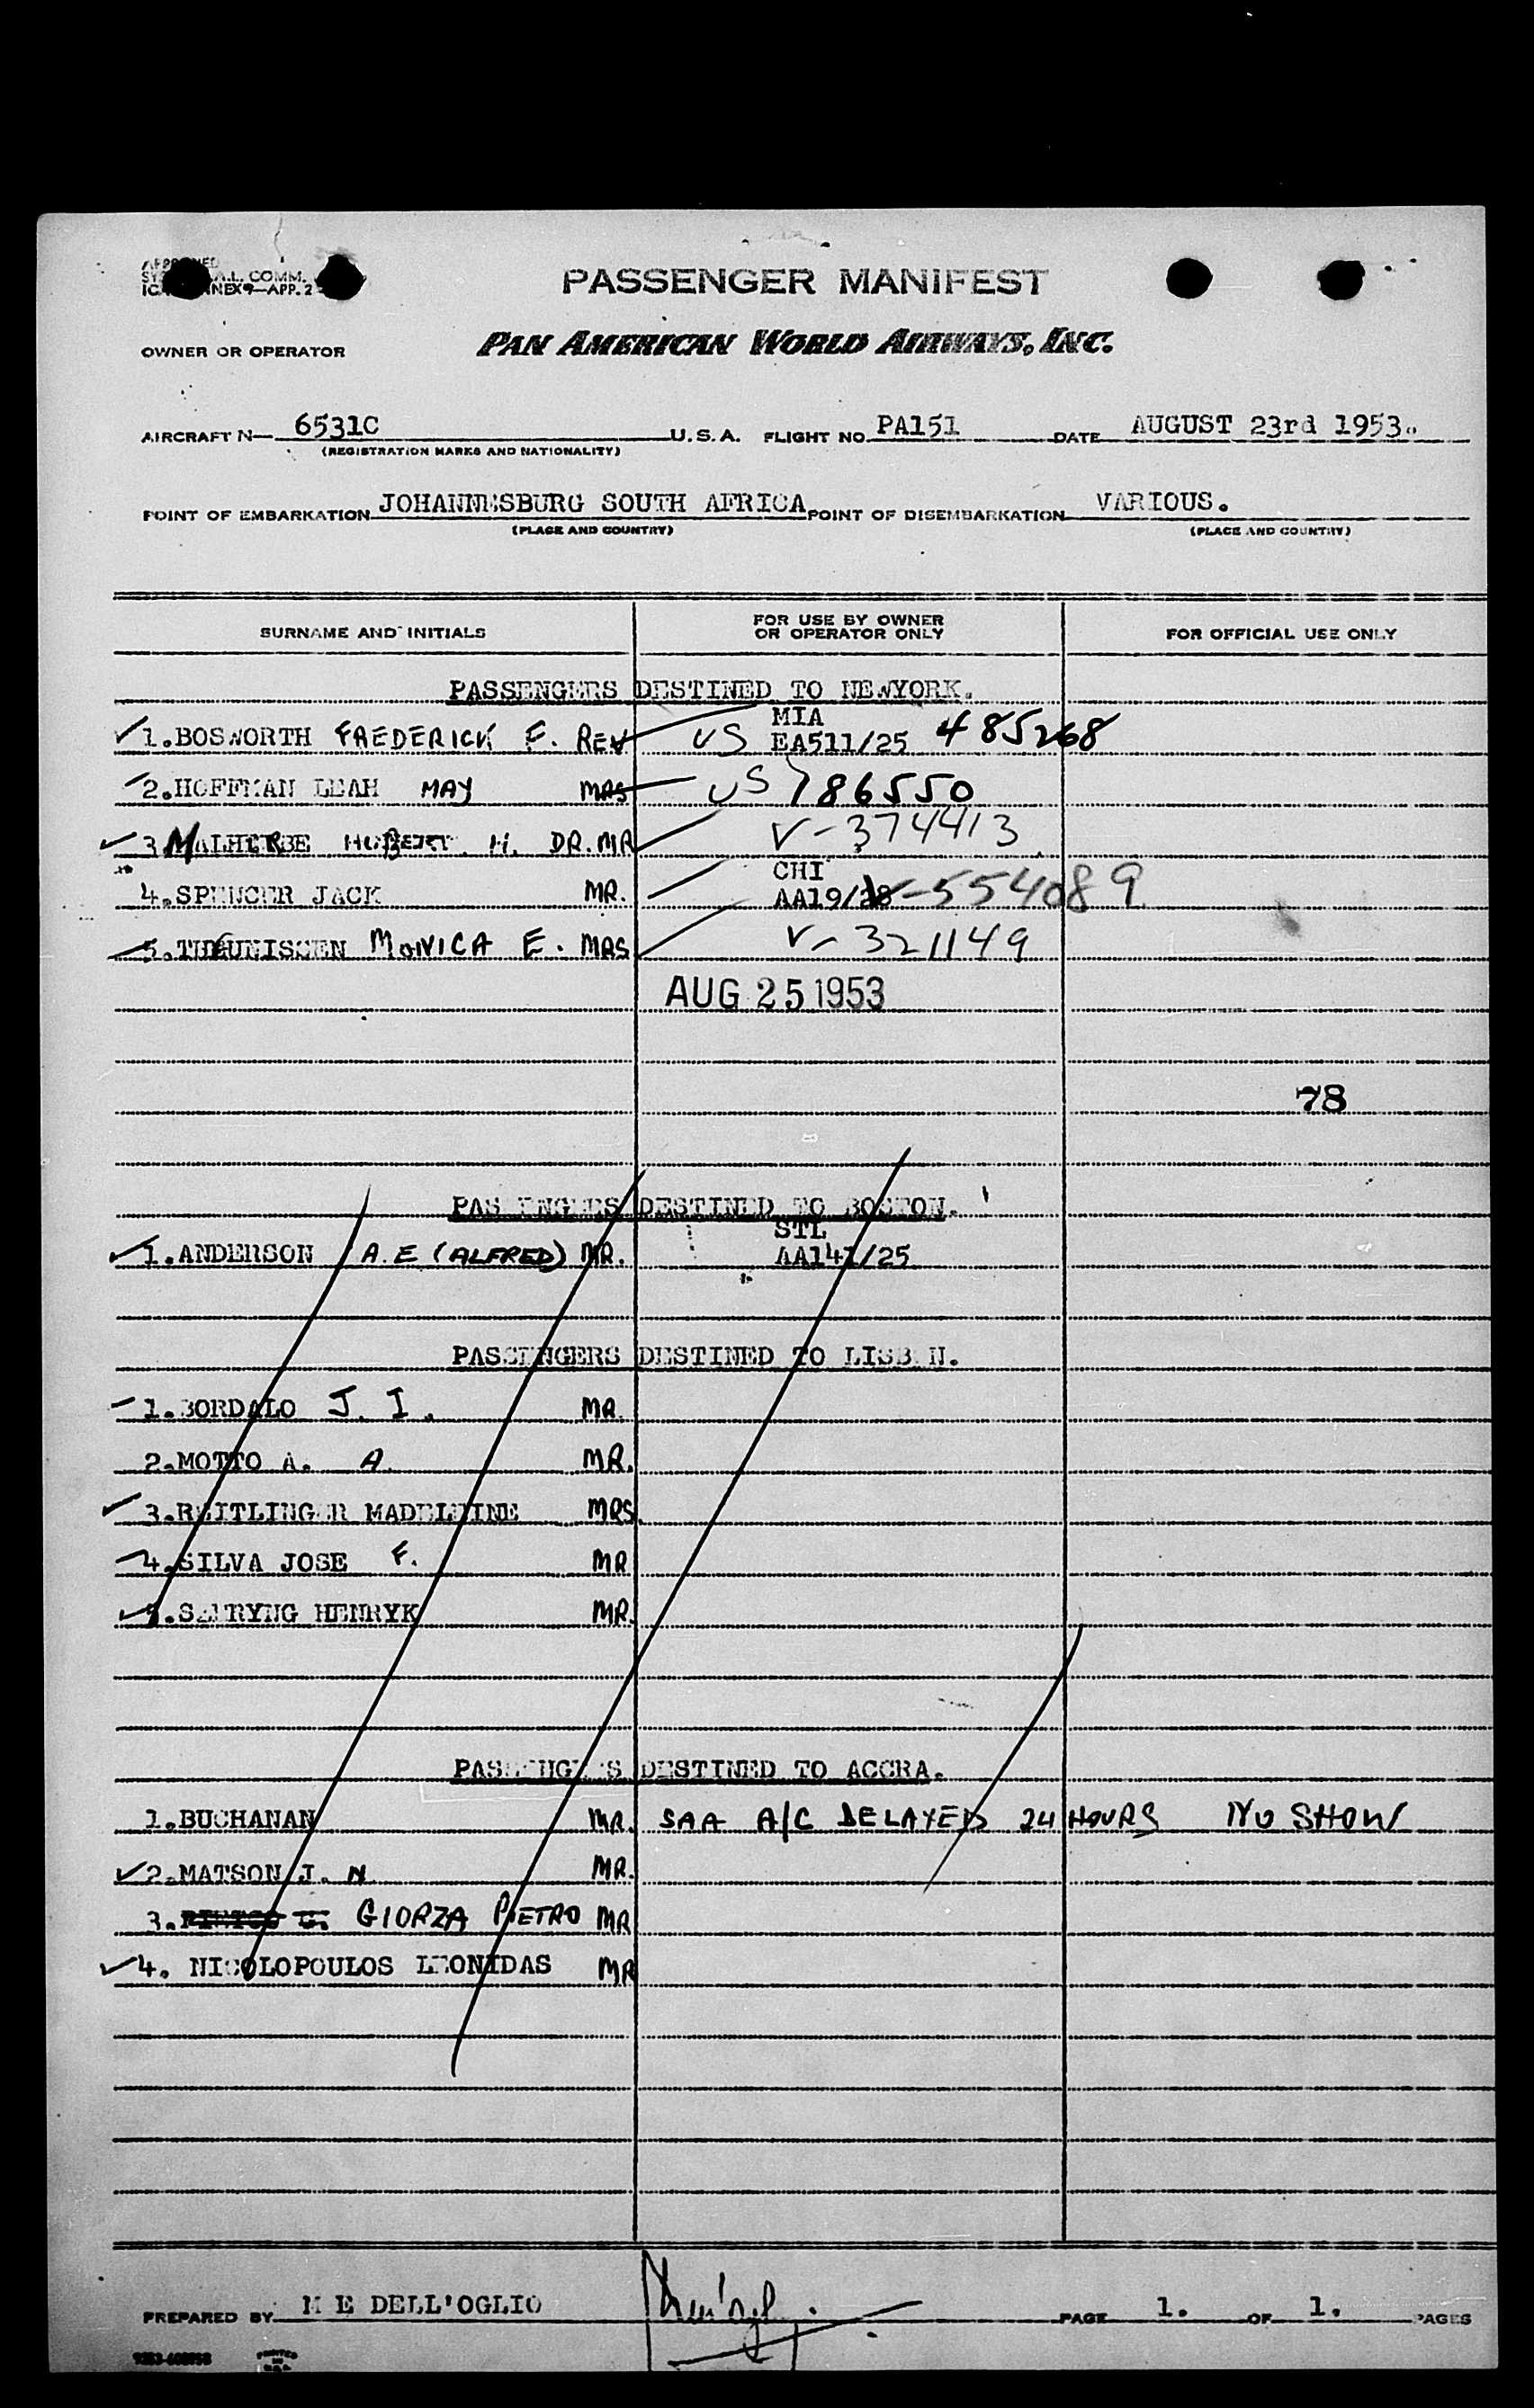 APPROVED
A.L. COMM.
ANNEX 9—APP. 2
PASSENGER MANIFEST
OWNER OR OPERATOR PAN AMERICAN WORLD AIRWAYS, INC.
AIRCRAFT N— 6531C U.S.A. FLIGHT NO. PA151 DATE AUGUST 23rd 1953.
(REGISTRATION MARKS AND NATIONALITY)
POINT OF EMBARKATION JOHANNESBURG SOUTH AFRICA POINT OF DISEMBARKATION VARIOUS.
(PLACE AND COUNTRY) (PLACE AND COUNTRY)
SURNAME AND INITIALS FOR USE BY OWNER OR OPERATOR ONLY FOR OFFICIAL USE ONLY
PASSENGERS DESTINED TO NEWYORK.
MIA
1.BOSWORTH FREDERICK F. REV US EA511/25 485268
2.HOFFMAN LEAH MAY MRS US 786550
3.MALHERBE H. DR. MR V-374413
CHI
4.SPENCER JACK MR. AA19/28 V-554089
5.THEUNISSEN MONICA E. MRS V-321149
AUG 25 1953
78
PASSENGERS DESTINED TO BOSTON.
STL
1.ANDERSON A.E (ALFRED) MR. AA141/25
PASSENGERS DESTINED TO LISBON.
1.BORDALO J. I. MR.
2.MOTTO A. A. MR.
3.REITLINGER MADELEINE MRS.
4.SILVA JOSE F. MR
5. HENRYK MR.
PASSENGERS DESTINED TO ACCRA.
1.BUCHANAN MR. SAA A/C DELAYED 24 HOURS NO SHOW
2.MATSON J. N MR.
3. GIORZA PIETRO MR
4. NICOLOPOULOS LEONIDAS MR
PREPARED BY M E DELL'OGLIO PAGE 1. OF 1. PAGES
PRINTED IN U.S.A.